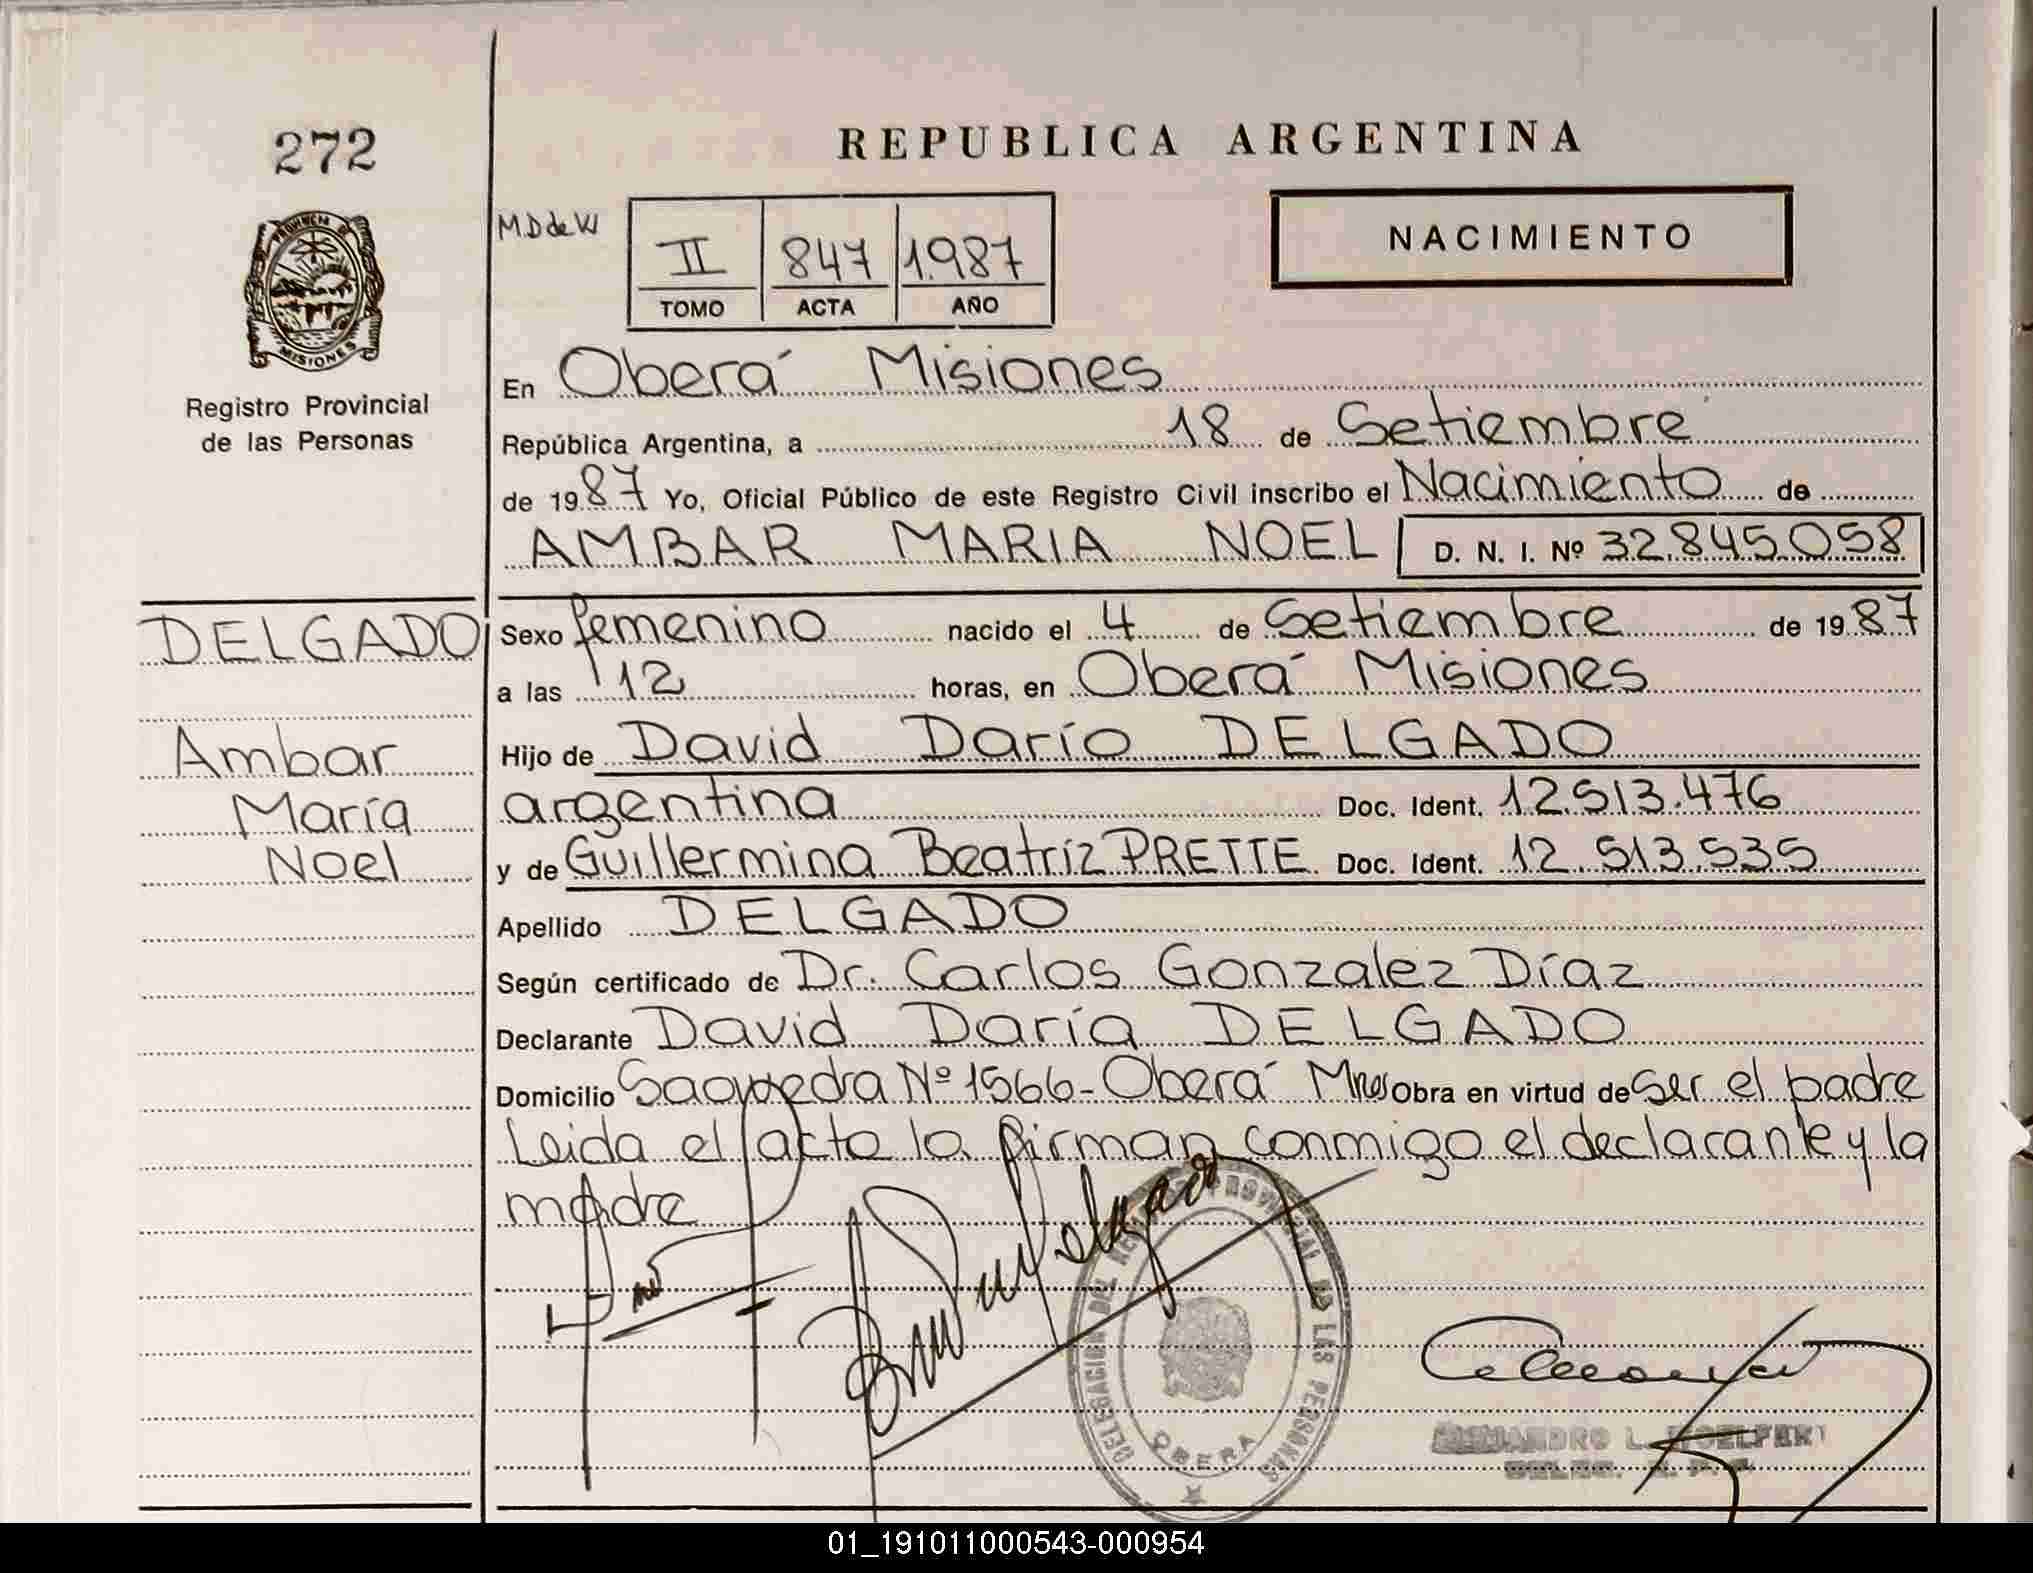 272
PROVINCIA DE
MISIONES
Registro Provincial
de las Personas
DELGADO
Ambar
María
Noel
REPUBLICA ARGENTINA
M.D de W
II 847 1.987
TOMO ACTA AÑO
NACIMIENTO
En Oberá Misiones
República Argentina, a 18 de Setiembre
de 1987 Yo, Oficial Público de este Registro Civil inscribo el Nacimiento de
AMBAR MARIA NOEL D. N. I. Nº 32.845.058
Sexo femenino nacido el 4 de Setiembre de 1987
a las 12 horas, en Oberá Misiones
Hijo de David Darío DELGADO
argentina Doc. Ident. 12.513.476
y de Guillermina Beatríz PRETTE Doc. Ident. 12.513.535
Apellido DELGADO
Según certificado de Dr. Carlos Gonzalez Díaz
Declarante David Daría DELGADO
Domicilio Saavedra Nº 1566-Oberá Mnes Obra en virtud de ser el padre
Leida el acta la firman conmigo el declarante y la
madre
Delgado
DELEGACION DEL REGISTRO PROVINCIAL DE LAS PERSONAS
OBERA
01_191011000543-000954